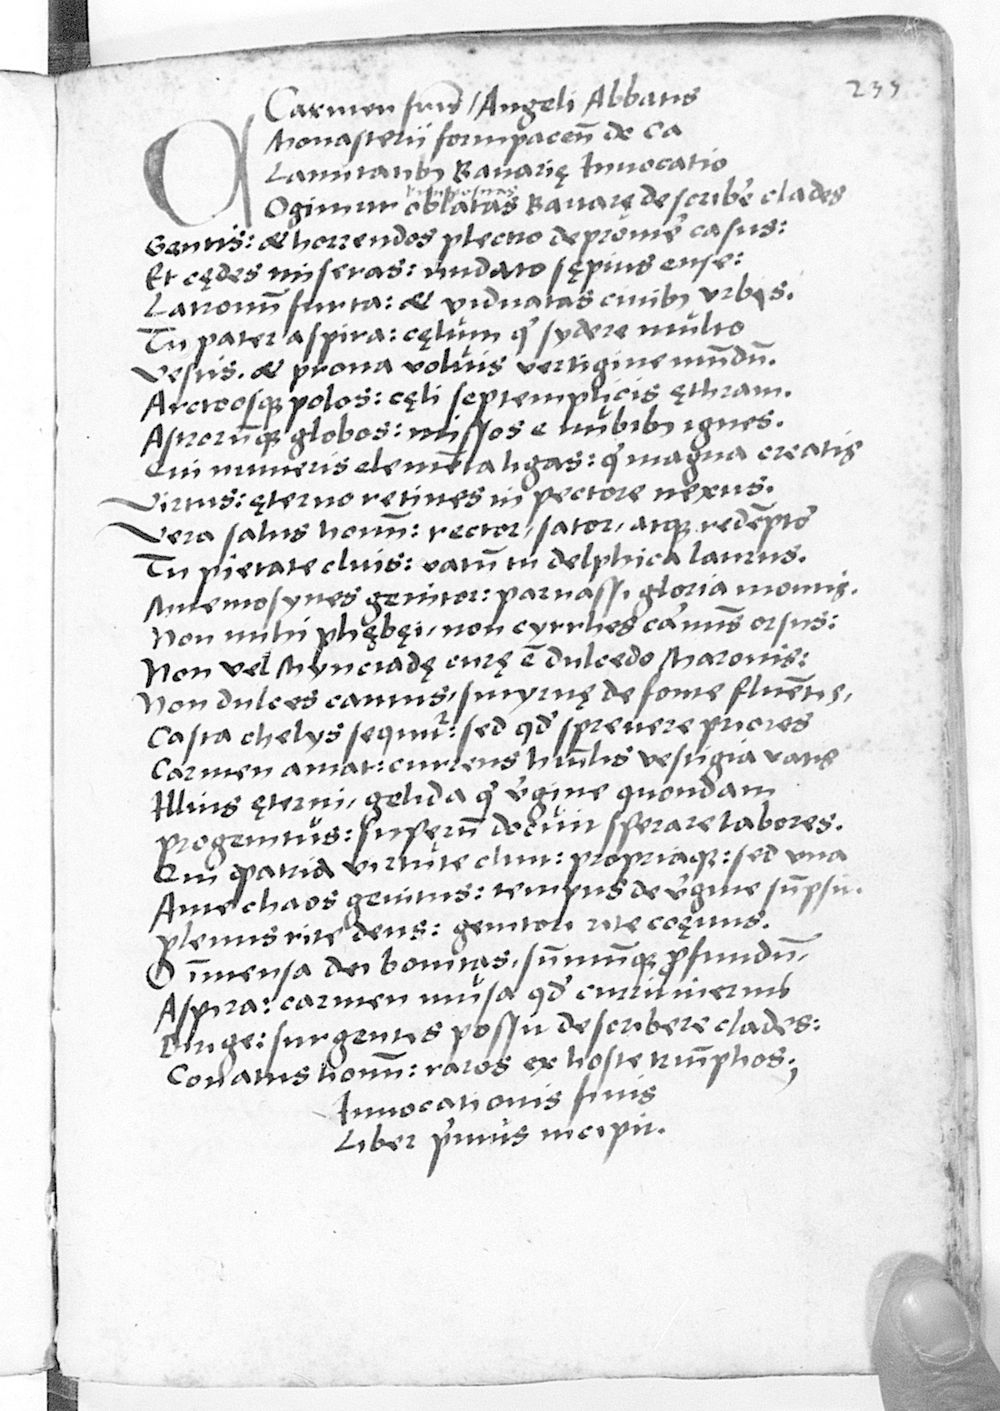 235
Carmen frīs / Angeli Abbatis
Monasterii formpaceñ de Ca
Lamitatibꝫ Bauarię Inuocatio
COgimur oblatas Bauarę describe᷒ clades
Gentis: & horrendos plectro deprome᷒ casus:
Et cędes miseras: nudato sępius ense:
Latronū furta: & viduatas ciuibꝫ vrbes.
Tu pater aspira: cęlum q᷒ sydere multo
Vestis. & prona voluis vertigine mūdū.
Arctoosqꝫ polos: cęli septemplicis ęthram.
Astrorūqꝫ globos: missos e nubibꝫ ignes.
Qui numeris elemēta ligas: q᷒ magna creatis
Virtus: ęterno retines in pectore nexus.
Vera salus hoīm: rector, sator, atqꝫ redēptor
Tu pietate cluis: vatū tu delphica laurus.
Mnemosynes genitor: parnassi gloria montis.
Non mihi phębęi, non cyrrhes carmīs orsus:
Non vel Mynciadę curę ē dulcedo Maronis:
Non dulces cantus, smyrnę de fonte fluētis,
Casta chelys sequitr: sed qđ spreuere priores
Carmen amat: currens huīlis vestigia vatis
Illius ęterni, gelida q᷒ v᷒gine quondam
progenitus: superū docuit sperare labores.
Qui patria virtute cluit: propriaqꝫ: sed vna
Ante chaos genitus: tempus de v᷒gine sūpsit.
plenus rite deus: genitori rite coęuus.
O īmensa dei bonitas, sūmūqꝫ ꝓfundū,
Aspira: carmen musa qđ currit inermis
Dirige: surgentis possū describere clades:
Conatus hoīm: raros ex hoste triūphos;
Inuocationis finis
Liber p᷒mus incipit.